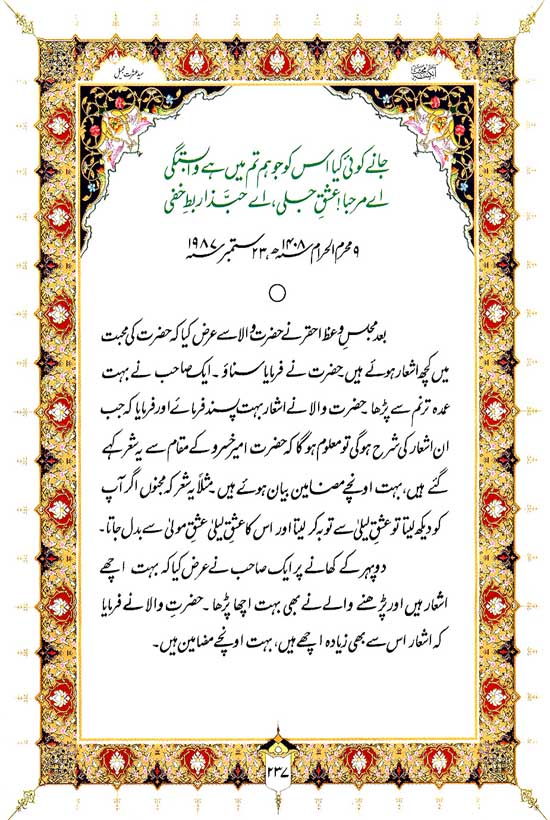 جانے کوئی کیا اس کو جو ہم تم میں ہے وابستگی
اے مرحبا! عشقِ جلی، اے حبَّذا ربطِ خفی
۹ محرم الحرام ۱۴۰۸ھ، ۲۳ ستمبر ۱۹۸۷
بعد مجلسِ وعظ احقر نے حضرت والا سے عرض کیا کہ حضرت کی محبت
میں کچھ اشعار ہوئے ہیں۔ حضرت نے فرمایا سناؤ۔ ایک صاحب نے بہت
عمدہ ترنم سے پڑھا۔ حضرت والا نے اشعار بہت پسند فرمائے اور فرمایا کہ جب
ان اشعار کی شرح ہوگی تو معلوم ہوگا کہ حضرت امیر خسرو کے مقام سے یہ شعر کہے
گئے ہیں، بہت اونچے مضامین بیان ہوئے ہیں۔ مثلاً یہ شعر کہ مجنوں اگر آپ
کو دیکھ لیتا تو عشقِ لیلیٰ سے توبہ کر لیتا اور اس کا عشقِ لیلیٰ عشقِ مولیٰ سے بدل جاتا۔
دوپہر کے کھانے پر ایک صاحب نے عرض کیا کہ بہت اچھے
اشعار ہیں اور پڑھنے والے نے بھی بہت اچھا پڑھا۔ حضرتِ والا نے فرمایا
کہ اشعار اس سے بھی زیادہ اچھے ہیں، بہت اونچے مضامین ہیں۔
۲۳۷